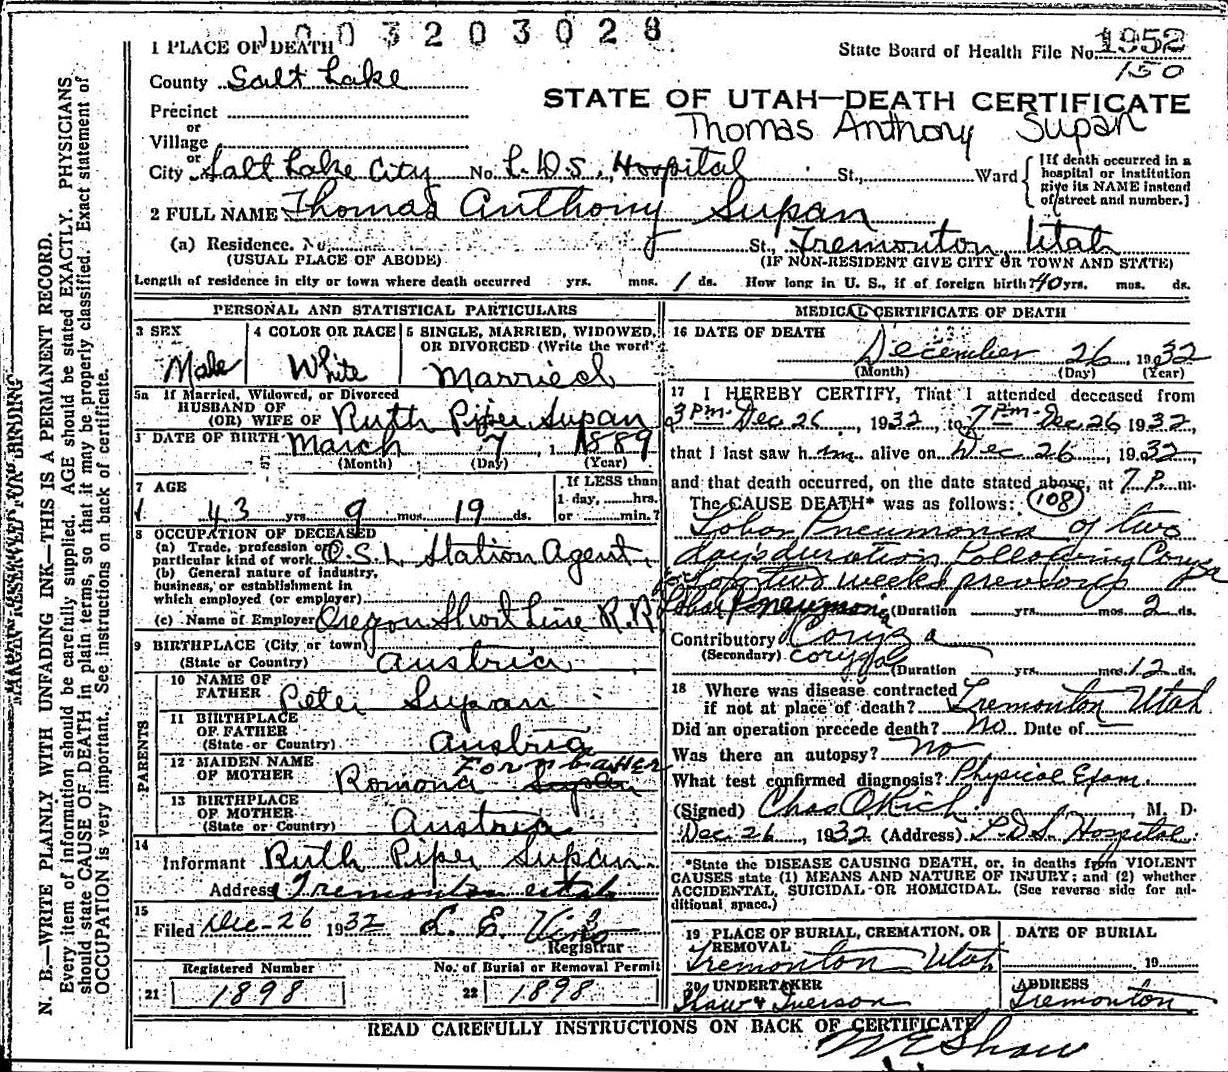 1003203028
State Board of Health File No. 1952
150
1 PLACE OF DEATH
County Salt Lake
Precinct
or
Village
or
City Salt Lake City No. L.D.S. Hospital St., Ward
{If death occurred in a hospital or institution give its NAME instead of street and number.}
STATE OF UTAH—DEATH CERTIFICATE
Thomas Anthony Supan
2 FULL NAME Thomas Anthony Supan
(a) Residence. No. St., Tremonton, Utah
(USUAL PLACE OF ABODE) (IF NON-RESIDENT GIVE CITY OR TOWN AND STATE)
Length of residence in city or town where death occurred yrs. mos. 1 ds. How long in U. S., if of foreign birth? 40 yrs. mos. ds.
PERSONAL AND STATISTICAL PARTICULARS
3 SEX
Male
4 COLOR OR RACE
White
5 SINGLE, MARRIED, WIDOWED, OR DIVORCED (Write the word)
Married
5a If Married, Widowed, or Divorced
HUSBAND OF
(OR) WIFE OF Ruth Piper Supan
DATE OF BIRTH March 7, 1889
(Month) (Day) (Year)
7 AGE
43 yrs. 9 mos. 19 ds.
If LESS than
1 day, hrs.
or min.?
8 OCCUPATION OF DECEASED
(a) Trade, profession or
particular kind of work O.S.L. Station Agent
(b) General nature of industry,
business, or establishment in
which employed (or employer)
(c) Name of Employer Oregon Short Line R.R.
9 BIRTHPLACE (City or town)
(State or Country) Austria
PARENTS
10 NAME OF
FATHER Peter Supan
11 BIRTHPLACE
OF FATHER
(State or Country) Austria
12 MAIDEN NAME
OF MOTHER Romona
13 BIRTHPLACE
OF MOTHER
(State or Country) Austria
14
Informant Ruth Piper Supan
Address Tremonton Utah
15
Filed Dec-26 1932 L. E.
Registrar
Registered Number
21 1898
No. of Burial or Removal Permit
22 1898
MEDICAL CERTIFICATE OF DEATH
16 DATE OF DEATH
December 26, 1932
(Month) (Day) (Year)
17 I HEREBY CERTIFY, That I attended deceased from
3 Pm Dec 26, 1932, to 7 Pm Dec 26 1932,
that I last saw him alive on Dec 26, 1932,
and that death occurred, on the date stated above, at 7 P. m.
The CAUSE DEATH* was as follows: (108)
Lobar Pneumonia of two
days duration following Coryza
for two weeks previous
Lobar Pneumonia (Duration yrs. mos. 2 ds.
Contributory Coryza
(Secondary) coryza
(Duration yrs. mos. 12 ds.
18 Where was disease contracted
if not at place of death? Tremonton Utah
Did an operation precede death? No Date of
Was there an autopsy? No
What test confirmed diagnosis? Physical Exam.
(Signed) Chas O Rich, M. D.
Dec 26, 1932 (Address) L.D.S. Hospital
*State the DISEASE CAUSING DEATH, or, in deaths from VIOLENT
CAUSES state (1) MEANS AND NATURE OF INJURY; and (2) whether
ACCIDENTAL, SUICIDAL OR HOMICIDAL. (See reverse side for additional space.)
19 PLACE OF BURIAL, CREMATION, OR
REMOVAL
Tremonton Utah
DATE OF BURIAL
19
20 UNDERTAKER
Shaw & Iverson
ADDRESS
Tremonton
READ CAREFULLY INSTRUCTIONS ON BACK OF CERTIFICATE
W E Shaw
MARGIN RESERVED FOR BINDING
N. B.—WRITE PLAINLY WITH UNFADING INK—THIS IS A PERMANENT RECORD.
Every item of information should be carefully supplied. AGE should be stated EXACTLY. PHYSICIANS
should state CAUSE OF DEATH in plain terms, so that it may be properly classified. Exact statement of
OCCUPATION is very important. See instructions on back of certificate.